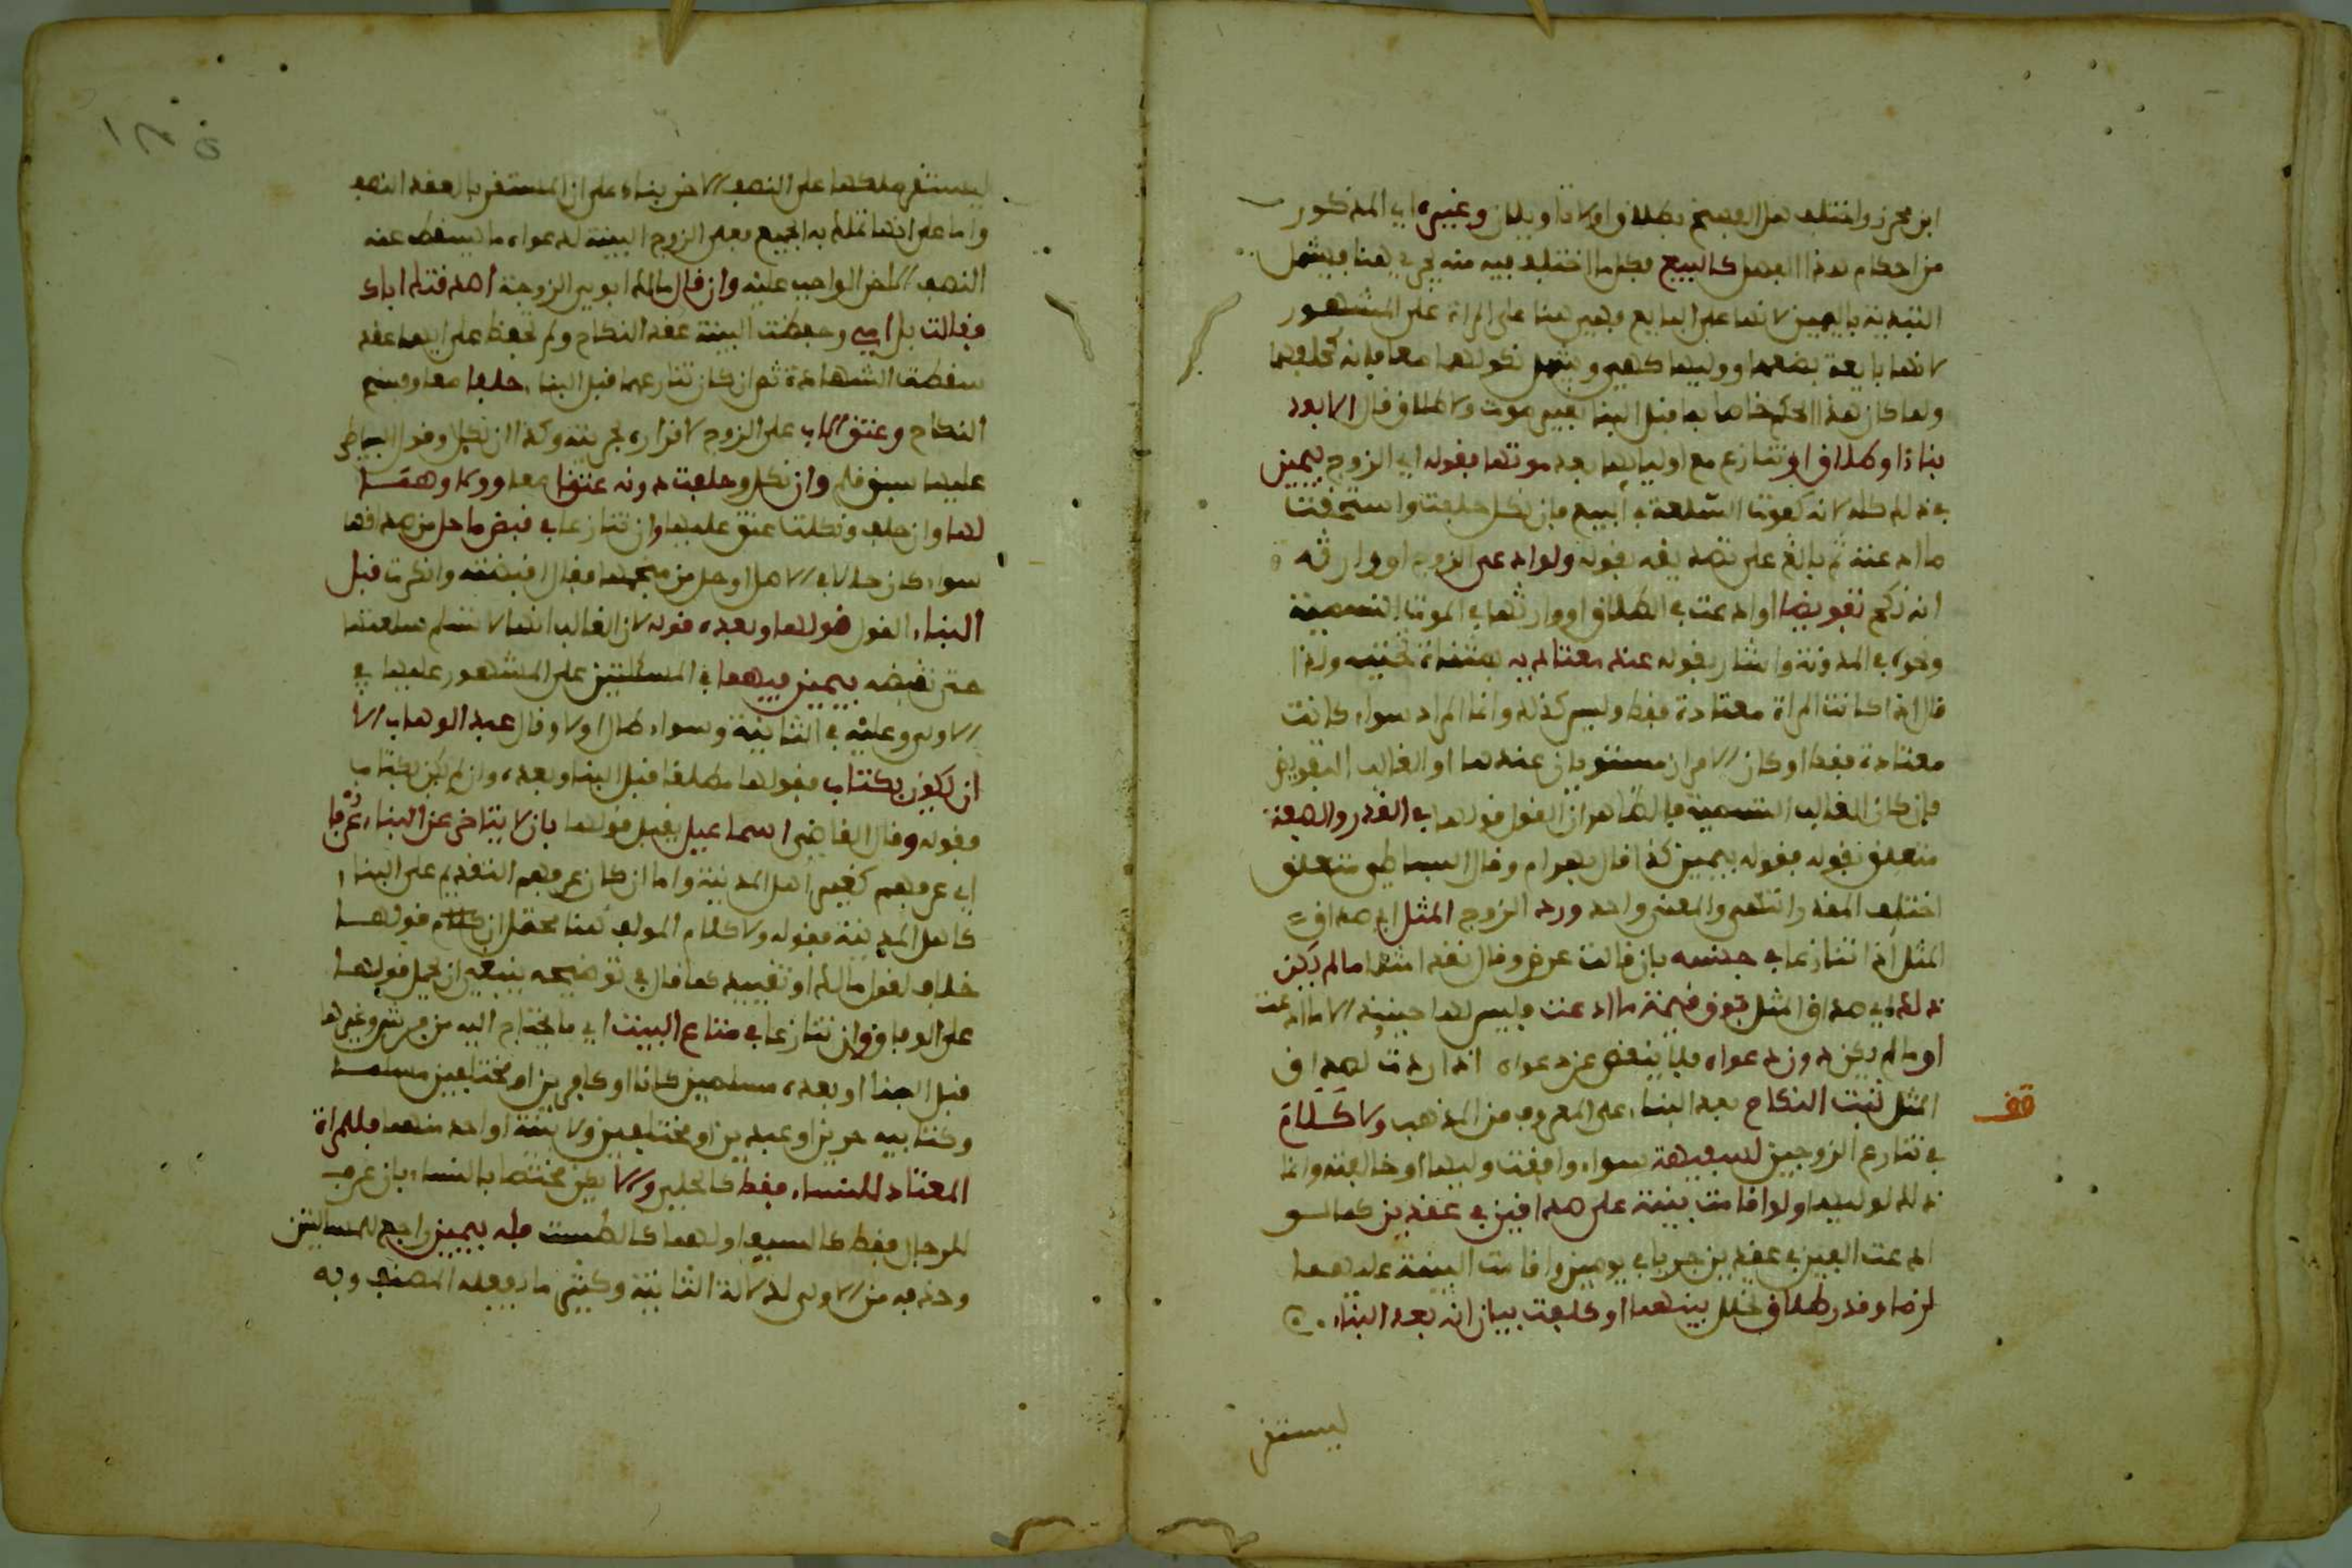 ابن محرز واختلف هل الفسخ بطلاق اولا تاويلان وغيره اي المذكور
من احكام هذا الفصل كالبيع فكل ما اختلف فيه منه يجري هنا فيشمل
التبدية باليمين لانها على البايع فهي هنا على المراة على المشهور
لانها بايعة بضعها او وليها كهي ويشمل نكولهما معا فانه كحلفهما
ولما كان هذا الحكم خاصا بما قبل البنا بغير موت ولا طلاق قال الا بعد
بنا او طلاق او تنازع مع اوليايها بعد موتها فقوله اي الزوج بيمين
في ذلك كله لانه كفوت السلعة في البيع فان نكل حلفت واستحقت
ما ادعته ثم بالغ على تصديقه بقوله ولو ادعى الزوج او وارثه
انه نكح تفويضا او ادعت في الطلاق او وارثها في الموت التسمية
ونحوه في المدونة واشار بقوله عند معتاديه
قال اذا كانت المراة معتادة فقط وليس كذلك وانما المراد سواء كانت
معتادة فقط او كان الامران مستويان عندهما او الغالب التفويض
فان كان الغالب التسمية فالظاهر ان القول قولها في القدر والصفة
متعلق بقوله فقوله بيمين كذا قال بهرام وقال البساطي متعلق
اختلف المقدر انتهى والمعنى واحد ورد الزوج المثل اي صداق
المثل اذا تنازعا في جنسه بان قالت عرض وقال نقد امثلها ما لم يكن
ذلك اي صداق المثل فوق قيمة ما ادعت فليس لها حينئذ الا ما ادعت
او ما لم يكن دون دعواه فلا ينقص عن دعواه اذا ردت لصداق
المثل ثبت النكاح بعد البناء على المعروف من المذهب ولا كلام
قف
في تنازع الزوجين لسفيهة سواء وافقت وليها او خالفته وانما
ذلك لوليها ولو اقامت بينة على صداقين في عقدين كما لو
ادعت الفين في عقدين جريا في يومين واقامت البينة عليهما
لزما وقدر طلاق تخلل بينهما وكلفت بيان انه بعد البناء
ليستقر
ليستقر ملكها على النصف الاخر بناء على ان المستقر بالعقد النصف
واما على انها تملك به الجميع فعلى الزوج البينة لدعواه ما يسقط عنه
النصف الاخر الواجب عليه وان قال مالك ابوي الزوجة اصدقتك اباك
فقالت بل امي وحفظت البينة عقد النكاح ولم تحفظ على ايهما عقد
سقطت الشهادة ثم ان كان تنازعهما قبل البناء حلفا معا وفسخ
النكاح وعتق الاب على الزوج لاقراره بحريته وكذا ان نكل وقول البساطي
عليها سبق قلم وان نكل وحلفت دونه عتقا معا وولاوهما
لها وان حلف ونكلت عتق عليها وان تنازعا في قبض ما حل من صداقها
سواء كان حالا في الاصل او حل من فقال اقبضته وانكرت قبل
البناء القول قولها وبعده قوله لان الغالب انها لا تسلم سلعتها
حتى تقبضه بيمين فيهما في المسئلتين على المشهور عليها في
الاولى وعليه في الثانية وسواء طال اولا وقال عبد الوهاب الا
ان يكون بكتاب فقولها مطلقا قبل البنا وبعده وان لم يكن بكتاب
فقوله وقال القاضي اسماعيل يقبل قولها بان لا يتاخر عن البناء عرفا
اي عرفهم كغير اهل المدينة واما ان كان عرفهم التقديم على البناء
كاهل المدينة فقوله ولا كلام المولف هنا محتمل ان كلام قولهما
خلاف لقول مالك او تقييد كما قال في توضيحه ينبغي ان يحمل قولهما
على الوفاق وان تنازعا في متاع البيت اي ما يحتاج اليه من فرش وغيرها
قبل البنا او بعده مسلمين كانا او كافرين او مختلفين مسلما
وكتابية حرين او عبدين او مختلفين ولا بينة لواحد منهما فللمراة
المعتاد للنساء فقط كالحلي والا يكن مختصا بالنساء بان عرف
للرجال فقط كالسيف او لهما كالطست فله بيمين راجع للمسالتين
وحذفه من الاولى لدلالة الثانية وكثير ما يفعله المصنف وبه